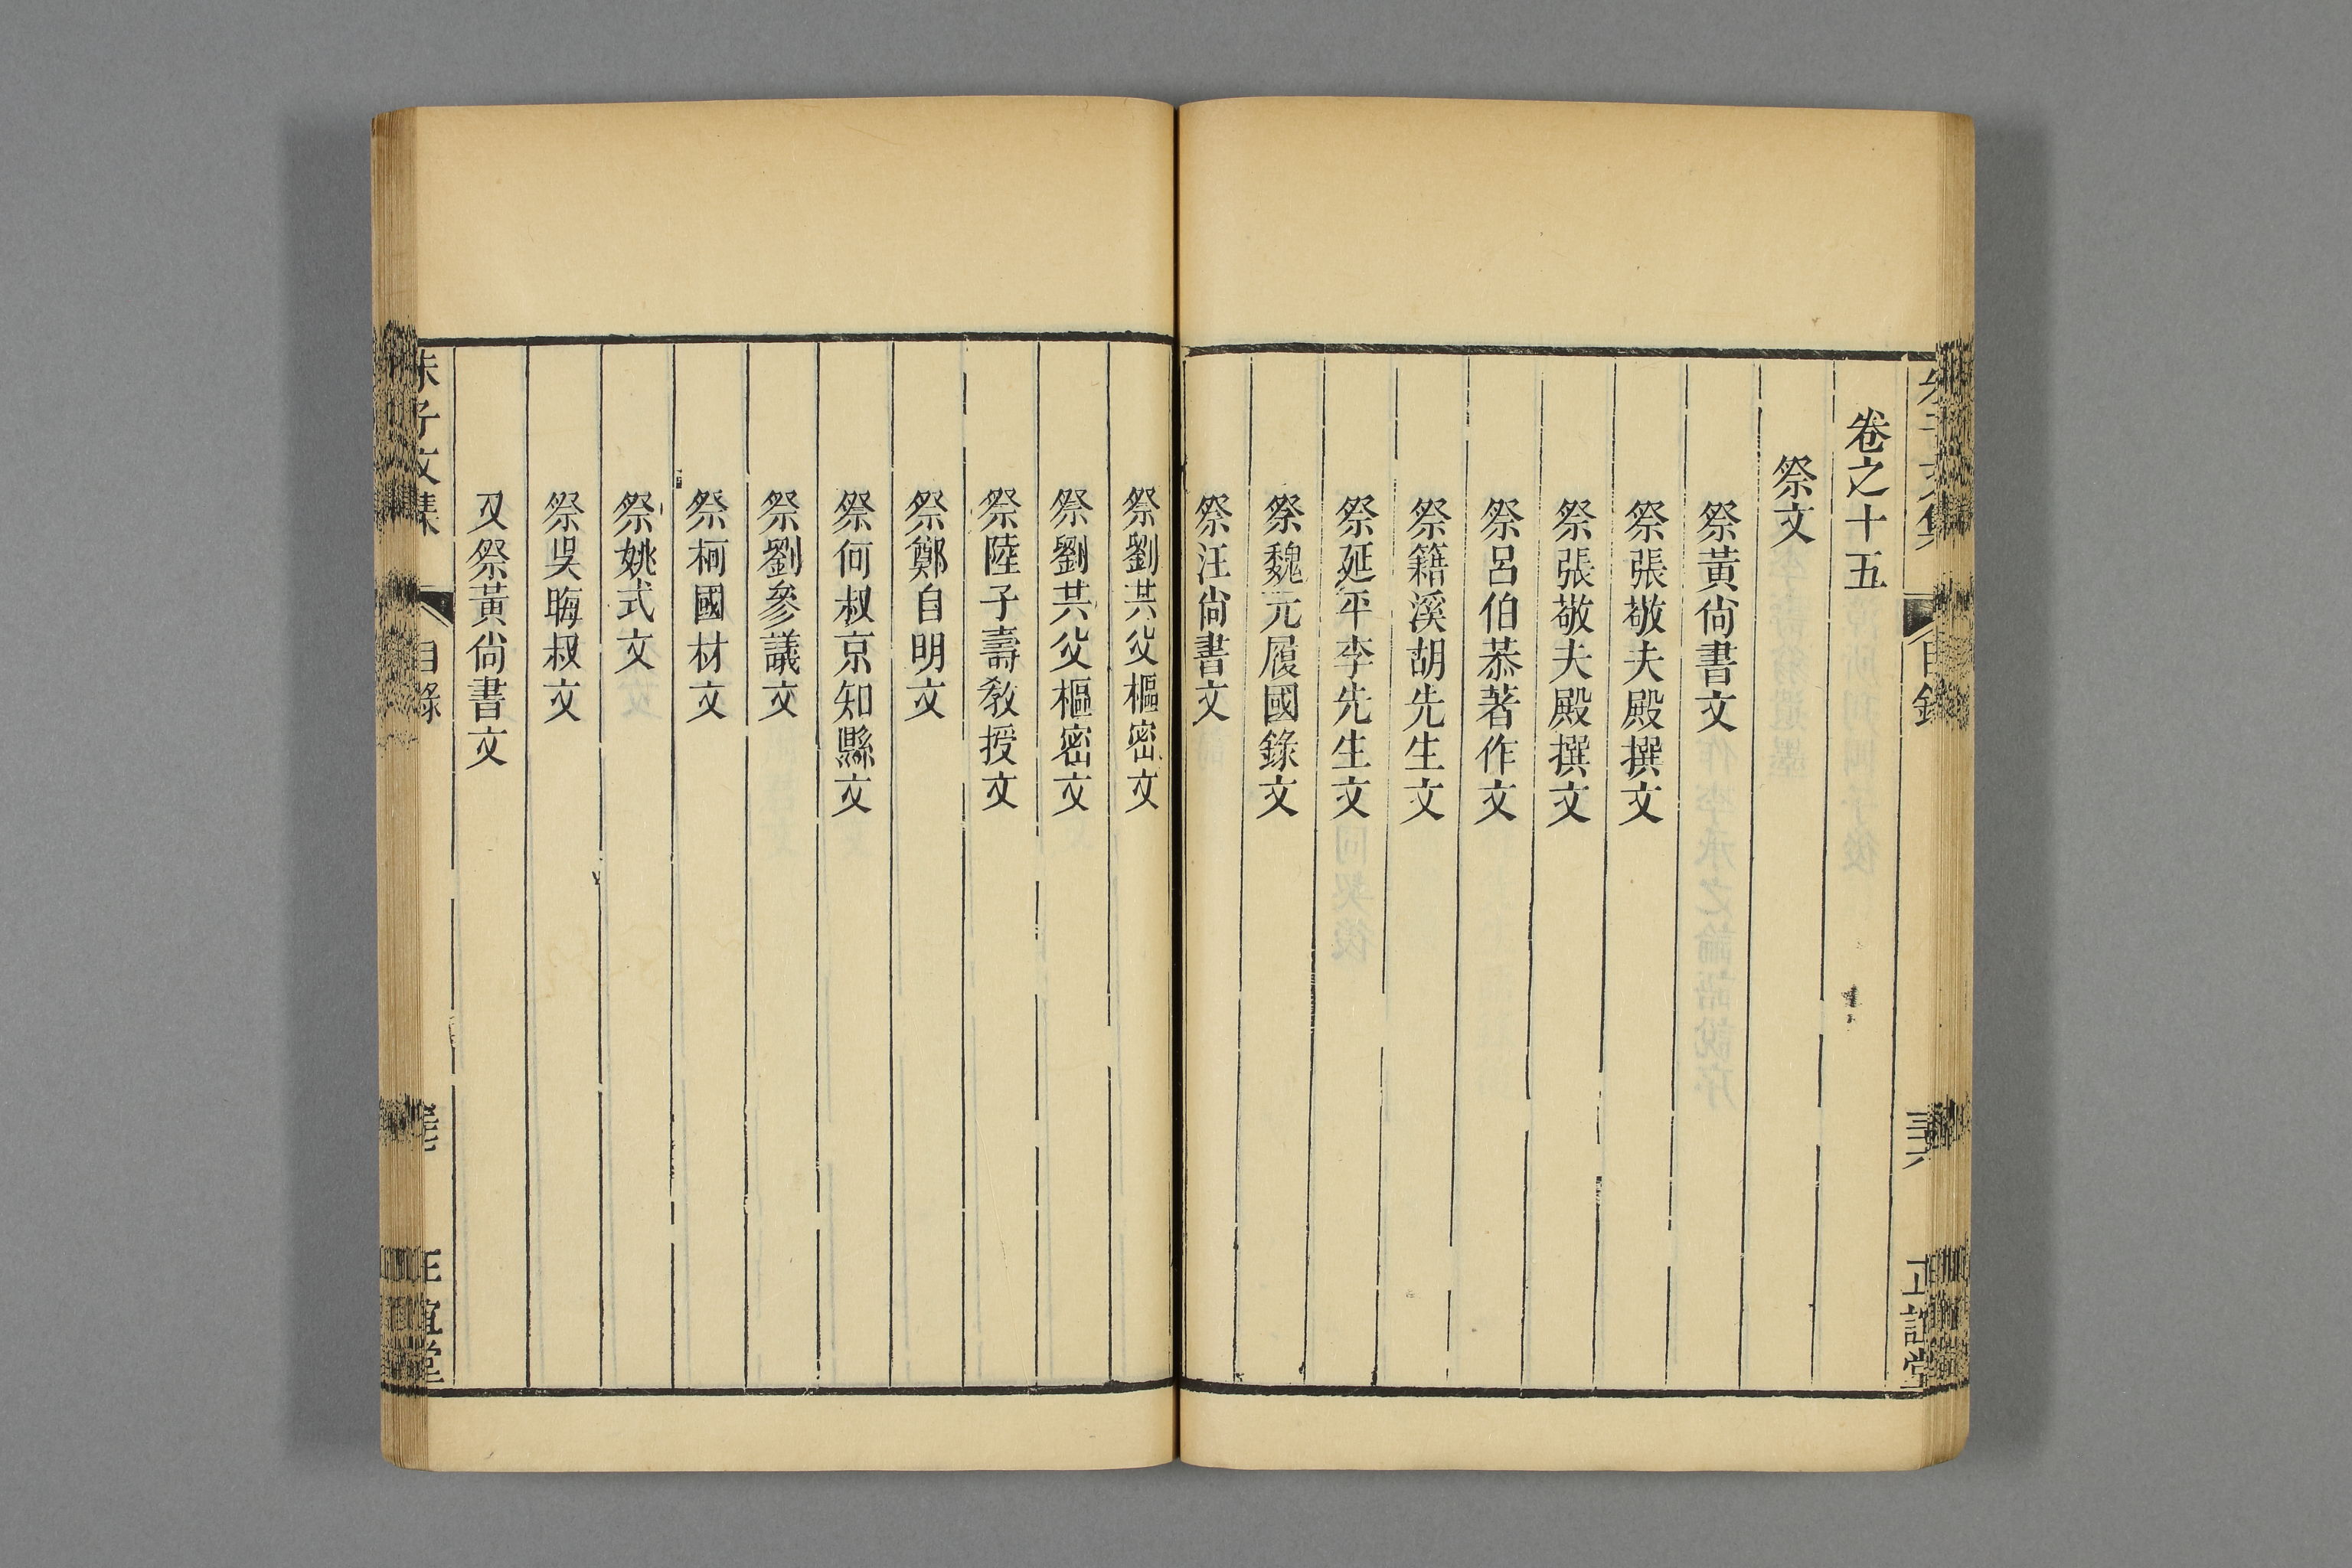 卷之十五
祭文
祭黃尙書文
祭張敬夫殿撰文
祭張敬夫殿撰文
祭呂伯恭著作文
祭籍溪胡先生文
祭延平李先生文
祭魏元履國錄文
祭汪尙書文
祭劉共父樞密文
祭劉共父樞密文
祭陸子壽敎授文
祭鄭自明文
祭何叔京知縣文
祭劉參議文
祭柯國材文
祭姚式文
祭吳晦叔文
又祭黃尙書文
朱子文集
目錄
正誼堂